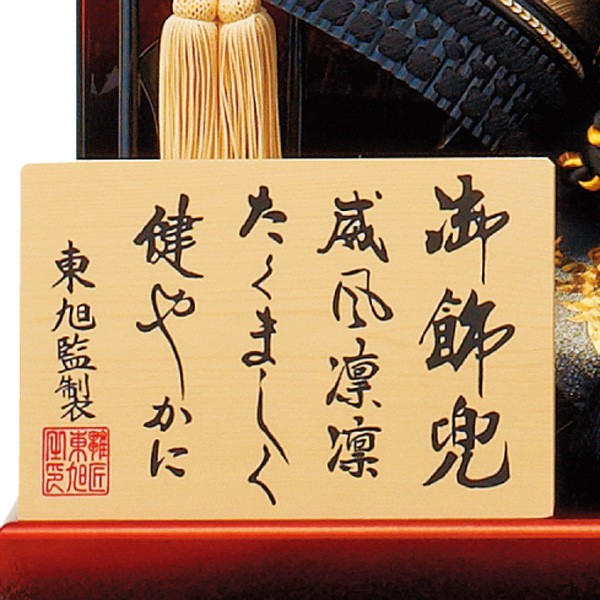 御飾兜
威風凛凛
たくましく
健やかに
東旭監製
雛匠
東旭
之印